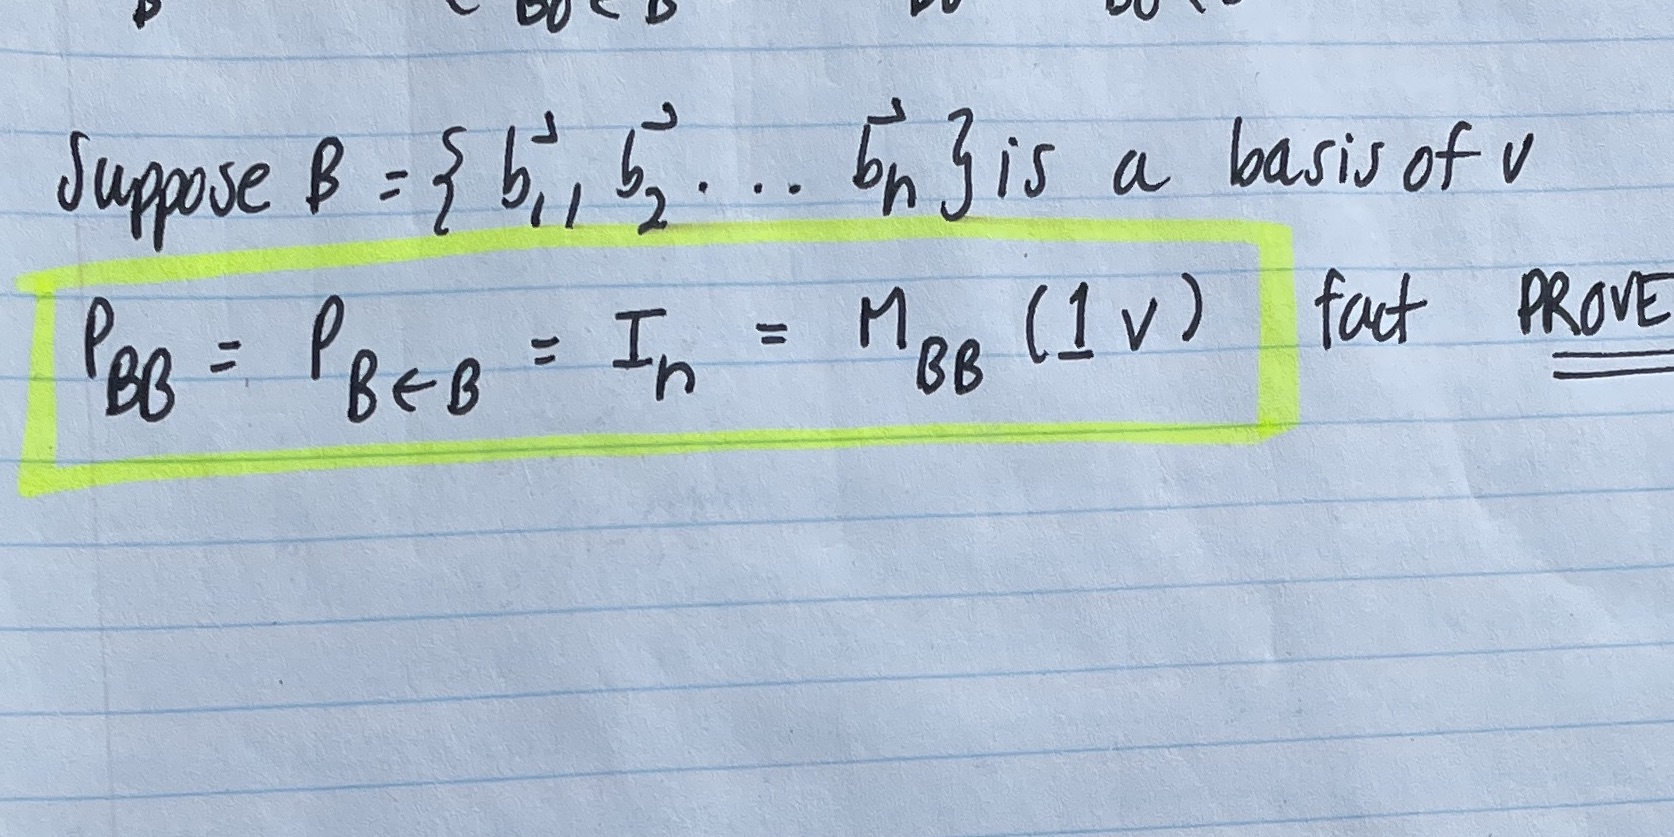 Suppose B = { b⃗₁, b⃗₂ . . . b⃗n } is a basis of v
P_BB = P_B←B = I_n = M_BB (1 v) fact PROVE